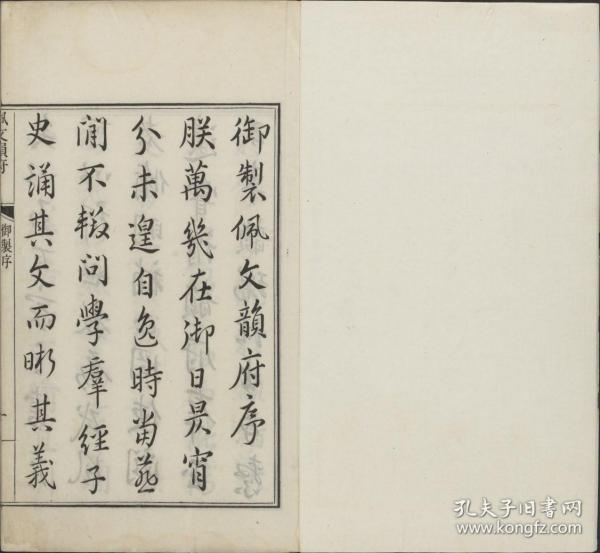 御製佩文韻府序
朕萬幾在御日昃宵
分未遑自逸時當燕
閒不輟問學羣經子
史誦其文而晰其義
佩文韻府
御製序
一
孔夫子旧书网
www.kongfz.com